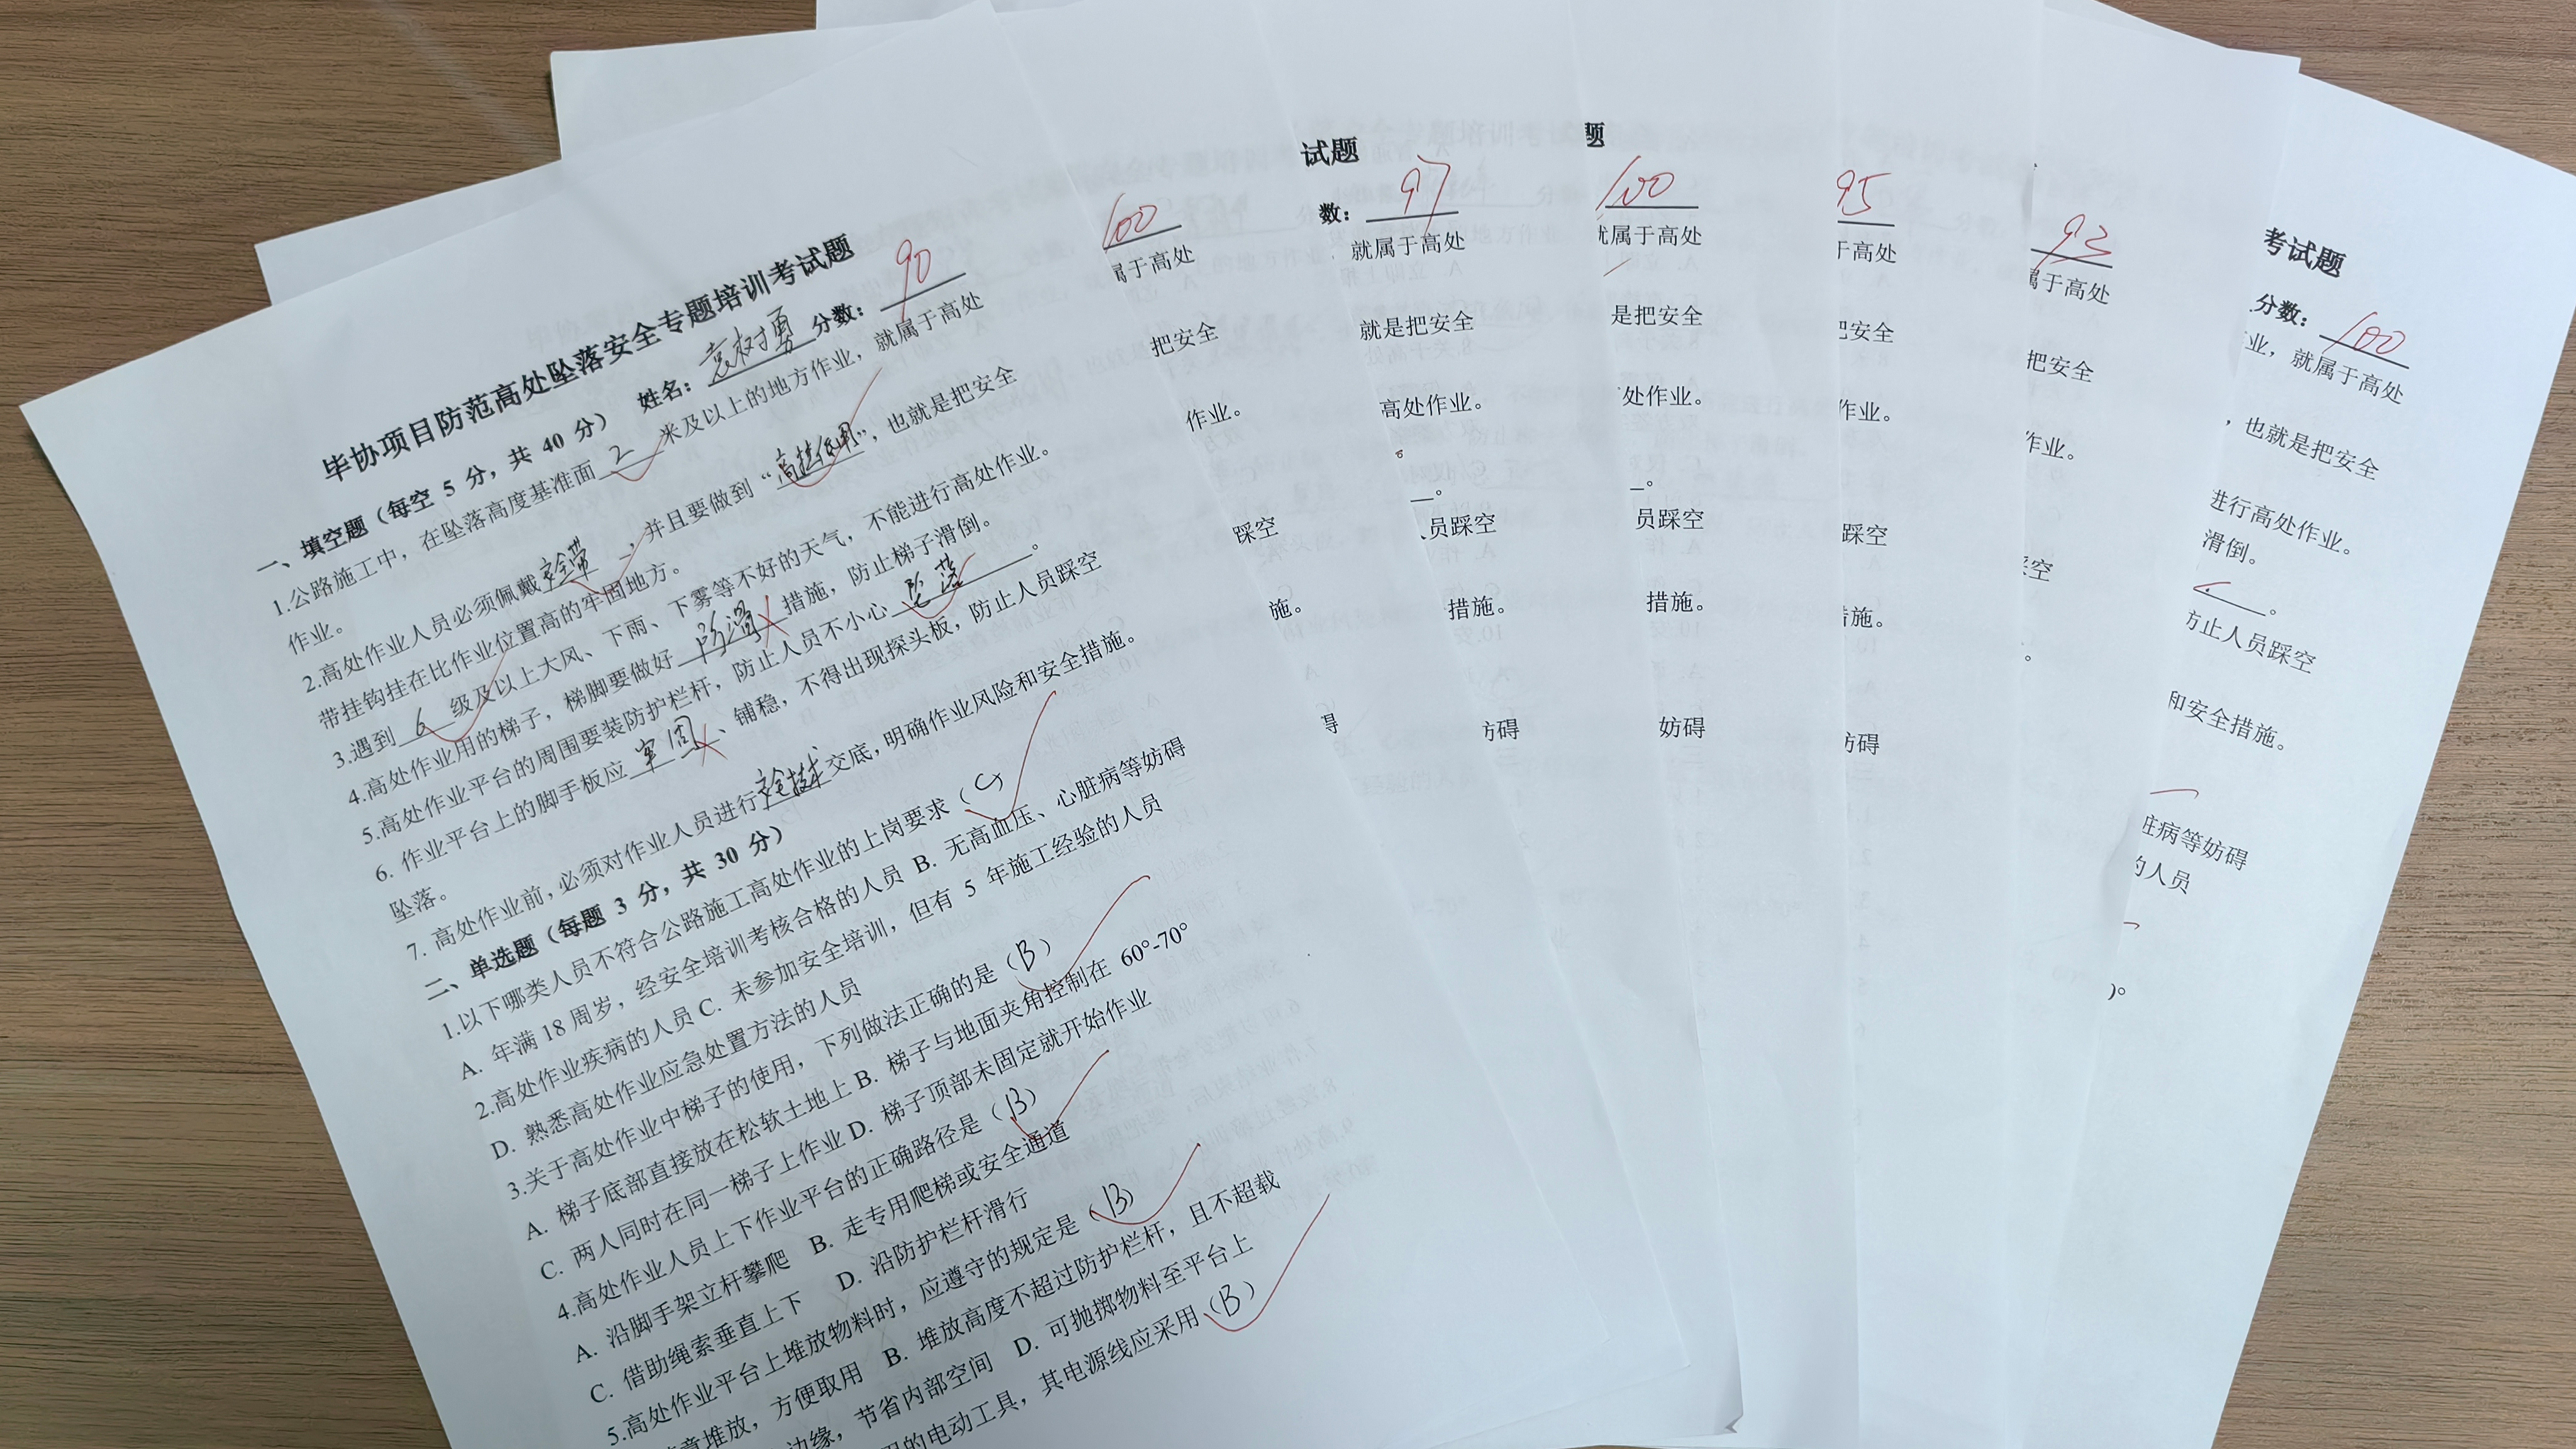 毕协项目防范高处坠落安全专题培训考试题
姓名：袁树勇 分数：90
一、填空题（每空 5 分，共 40 分）
1.公路施工中，在坠落高度基准面 2 米及以上的地方作业，就属于高处
作业。
2.高处作业人员必须佩戴安全带，并且要做到“高挂低用”，也就是把安全
带挂钩挂在比作业位置高的牢固地方。
3.遇到 6 级及以上大风、下雨、下雾等不好的天气，不能进行高处作业。
4.高处作业用的梯子，梯脚要做好 防滑 措施，防止梯子滑倒。
5.高处作业平台的周围要装防护栏杆，防止人员不小心 坠落 。
6. 作业平台上的脚手板应 牢固 、铺稳，不得出现探头板，防止人员踩空
坠落。
7. 高处作业前，必须对作业人员进行安全技术交底，明确作业风险和安全措施。
二、单选题（每题 3 分，共 30 分）
1.以下哪类人员不符合公路施工高处作业的上岗要求（C）
A. 年满 18 周岁，经安全培训考核合格的人员 B. 无高血压、心脏病等妨碍
2.高处作业疾病的人员 C. 未参加安全培训，但有 5 年施工经验的人员
D. 熟悉高处作业应急处置方法的人员
3.关于高处作业中梯子的使用，下列做法正确的是（B）
A. 梯子底部直接放在松软土地上 B. 梯子与地面夹角控制在 60°-70°
C. 两人同时在同一梯子上作业 D. 梯子顶部未固定就开始作业
4.高处作业人员上下作业平台的正确路径是（B）
A. 沿脚手架立杆攀爬 B. 走专用爬梯或安全通道
C. 借助绳索垂直上下 D. 沿防护栏杆滑行
5.高处作业平台上堆放物料时，应遵守的规定是（B）
意堆放，方便取用 B. 堆放高度不超过防护栏杆，且不超载
边缘，节省内部空间 D. 可抛掷物料至平台上
的电动工具，其电源线应采用（B）
100
属于高处
把安全
作业。
踩空
施。
碍
试题
数：97
就属于高处
就是把安全
高处作业。
。
员踩空
措施。
妨碍
题
100
就属于高处
是把安全
处作业。
。
员踩空
措施。
妨碍
95
于高处
把安全
作业。
踩空
措施。
妨碍
92
属于高处
把安全
作业。
踩空
。
考试题
分数：100
业，就属于高处
，也就是把安全
进行高处作业。
滑倒。
。
防止人员踩空
和安全措施。
脏病等妨碍
的人员
）。